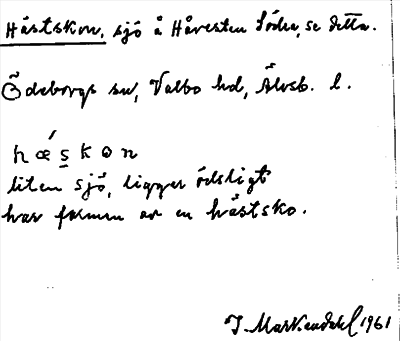 Håstskon, sjö å Håvesten Södra, se detta.
Ödeborgs sn, Valbo hd, Älvsb. l.
hǽs̱kon
liten sjö, ligger ödsligt
har formen av en håstsko.
J. Markendahl 1961